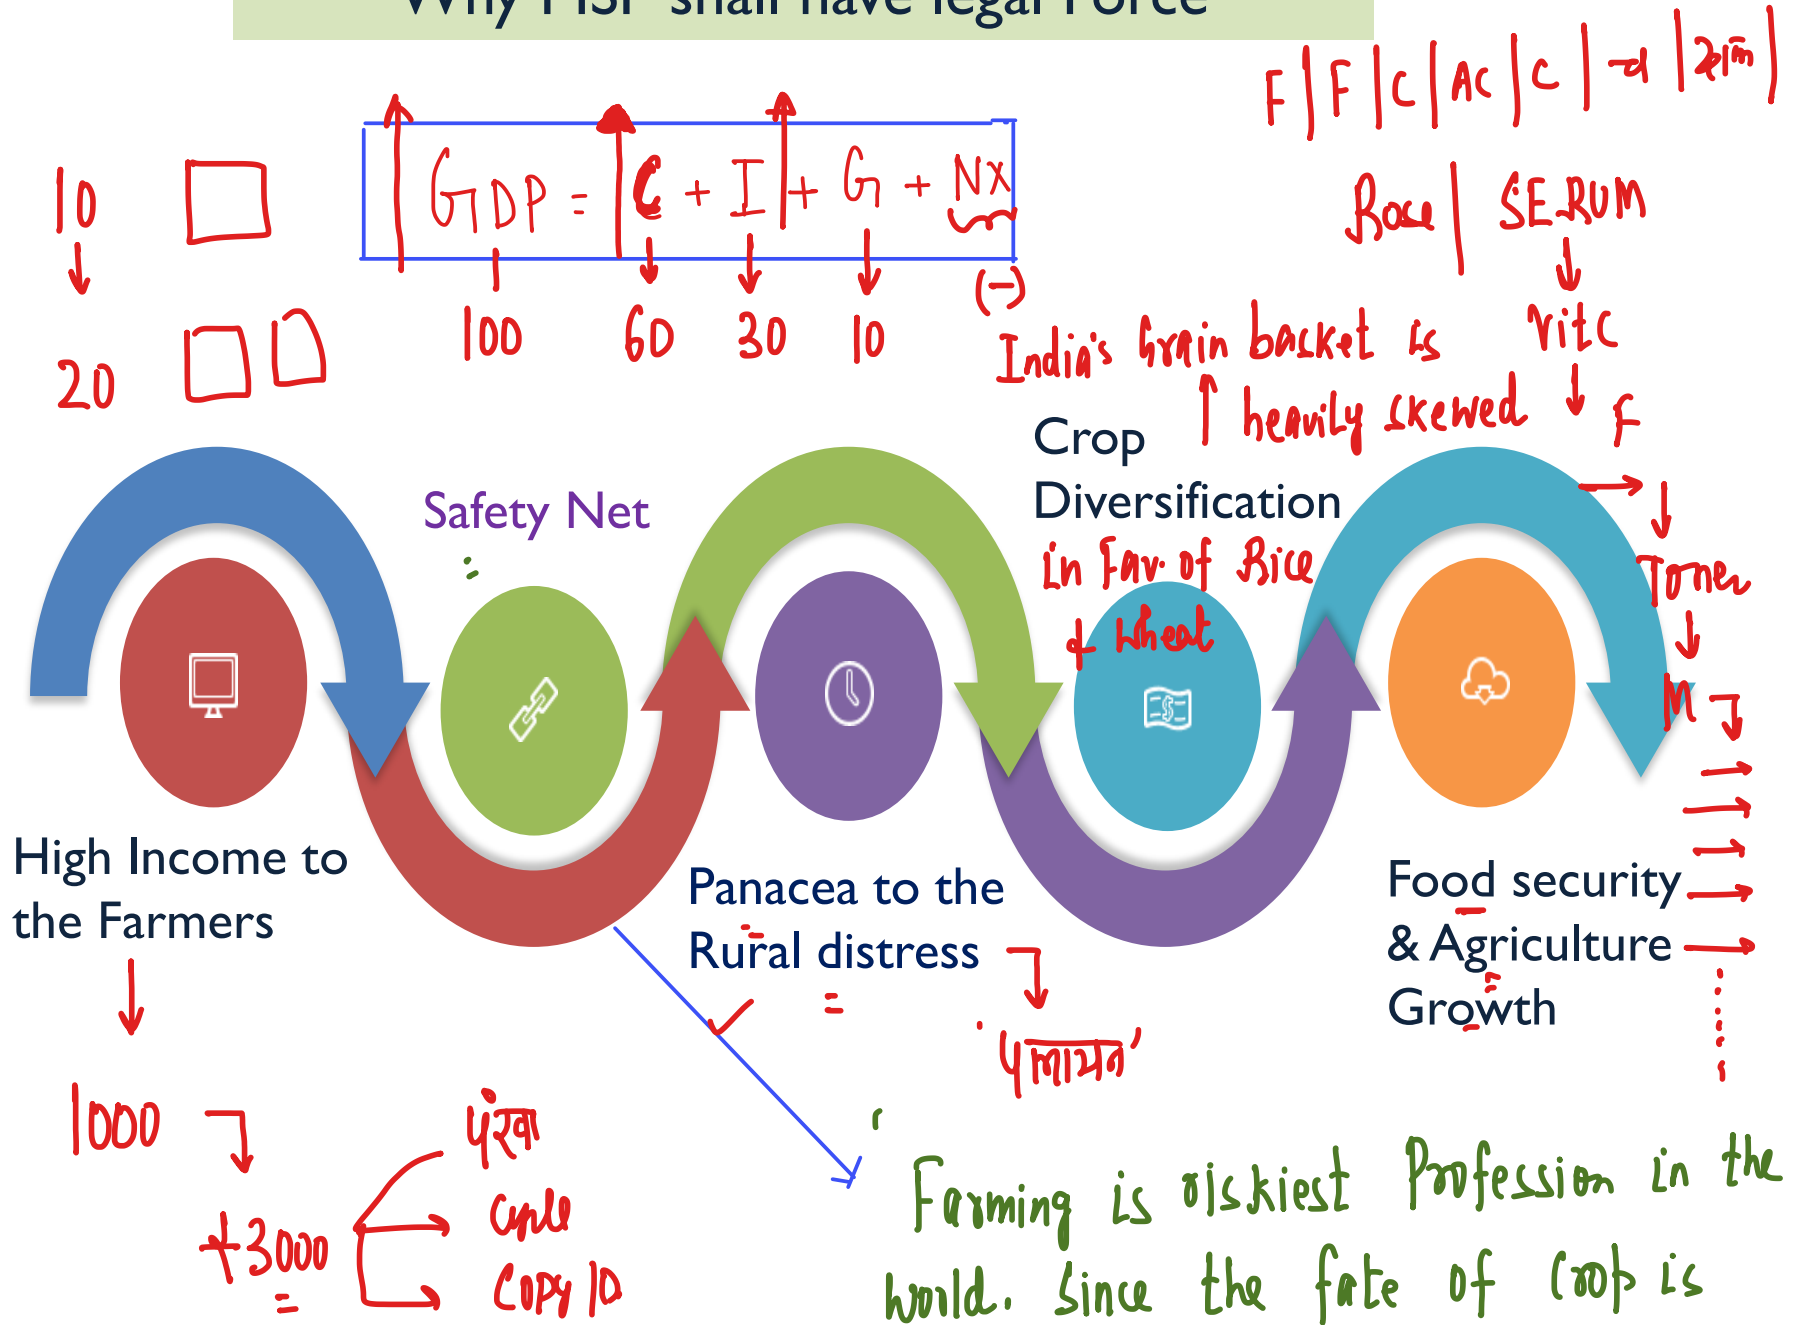 Why MSP shall have legal Force
F | F | C | AC | C |
10
GDP = C + I + G + NX
Rose | SERUM
(-)
20
100 60 30 10
India's Grain backet is
heavily skewed
Vitc
F
Crop
Diversification
in Fav. of Rice
& Wheat
Safety Net
Toner
M
High Income to
the Farmers
Panacea to the
Rural distress
Food security
& Agriculture
Growth
'पलायन'
1000
+3000
पंखा
Cycle
Copy 10
Farming is riskiest Profession in the
world. Since the fate of Crop is